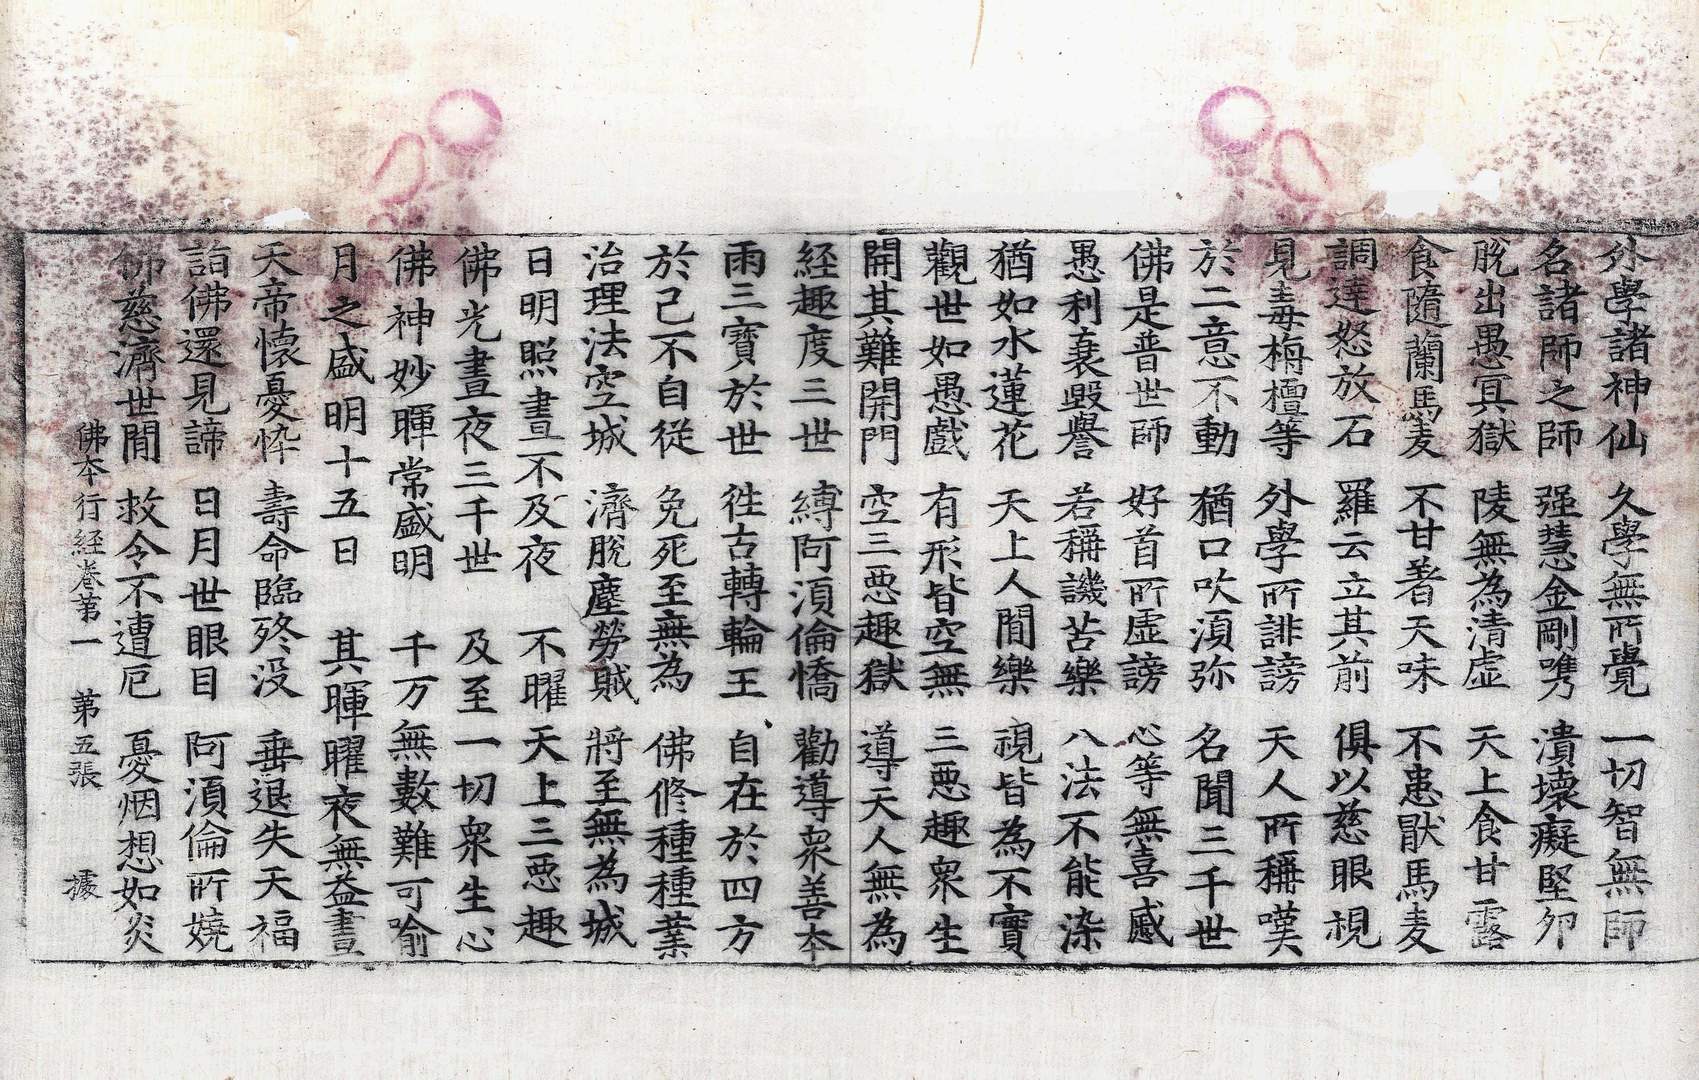 外學諸神仙　久學無所覺　一切智無師
名諸師之師　强慧金剛嘴　潰壞癡堅夘
脫出愚冥獄　陵無為清虛　天上食甘露
食隨蘭馬麦　不甘著天味　不患猒馬麦
調達怒放石　羅云立其前　俱以慈眼視
見毒栴檀等　外學所誹謗　天人所稱嘆
於二意不動　猶口吹須弥　名聞三千世
佛是普世師　好首所虛謗　心等無喜慼
愚利衰毀譽　若稱譏苦樂　八法不能染
猶如水蓮花　天上人間樂　視皆為不實
觀世如愚戲　有形皆空無　三惡趣衆生
開其難開門　空三惡趣獄　導天人無為
經趣度三世　縛阿須倫憍　勸導衆善本
雨三寶於世　徃古轉輪王　自在於四方
於己不自從　免死至無為　佛修種種業
治理法空城　濟脫塵勞賊　將至無為城
日明照晝不及夜　不曜天上三惡趣
佛光晝夜三千世　及至一切衆生心
佛神妙暉常盛明　千万無數難可喻
月之盛明十五日　其暉曜夜無益晝
天帝懷憂悴　壽命臨終没　垂退失天福
詣佛還見諦　日月世眼目　阿須倫所嬈
佛慈濟世間　救令不遭厄　憂烟想如炎
佛本行經卷第一　第五張　據